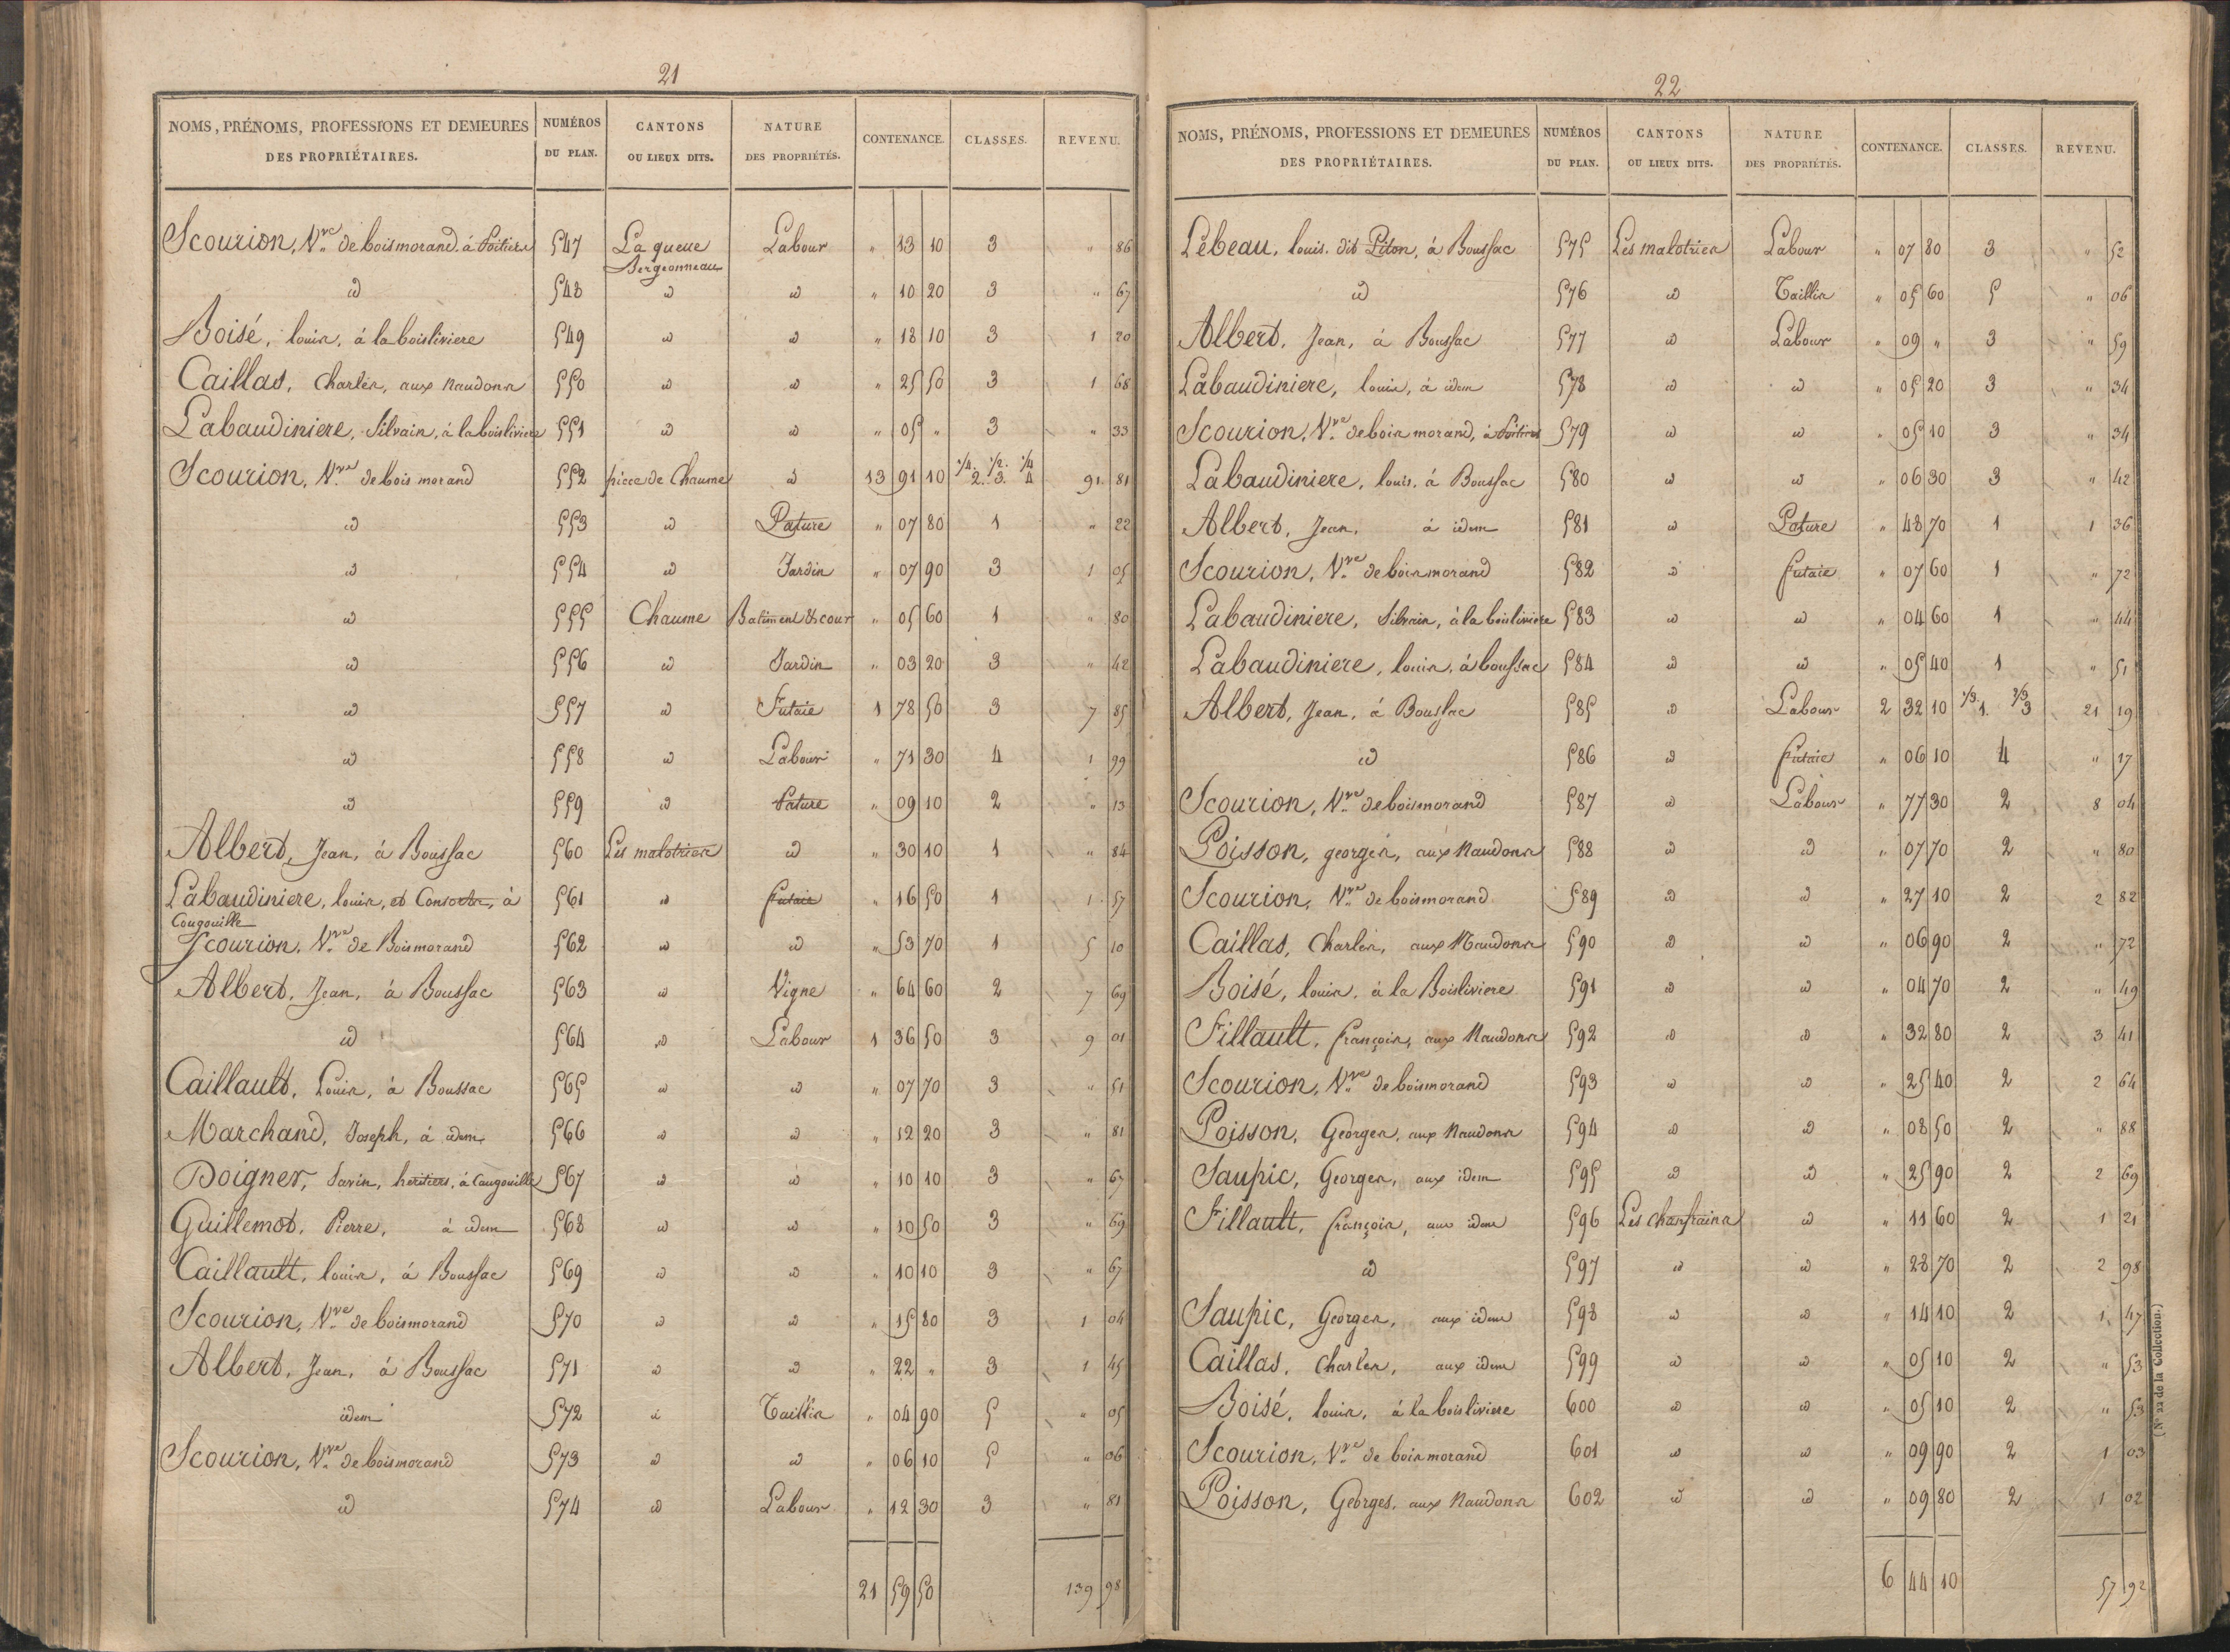 21
NOMS, PRÉNOMS, PROFESSIONS ET DEMEURES DES PROPRIÉTAIRES. NUMÉROS DU PLAN. CANTONS OU LIEUX DITS. NATURE DES PROPRIÉTÉS. CONTENANCE. CLASSES. REVENU.
Scourion, Vve de boismorand à Poitiers 547 La queue Bergeonneau Labour " 13 10 3 " 86
id 548 id id " 10 20 3 " 67
Boisé, louis, à la boisliviere 549 id id " 18 10 3 1 20
Caillas, Charles, aux Naudons 550 id id " 25 50 3 1 68
Labaudiniere, Silvain, à la boisliviere 551 id id " 05 " 3 " 33
Scourion, Vve de bois morand 552 piece de Chaume id 13 91 10 1/4 2. 1/2 3. 1/4 4 91 81
id 553 id Pature " 07 80 1 " 22
id 554 id Jardin " 07 90 3 1 05
id 555 Chaume Batiment & cour " 05 60 1 " 80
id 556 id Jardin " 03 20 3 " 42
id 557 id Futaie 1 78 50 3 7 85
id 558 id Labour " 71 30 4 1 99
id 559 id Pature " 09 10 2 " 13
Albert, Jean, à Boussac 560 Les malotries id " 30 10 1 " 84
Labaudiniere, louis, et Consorts, à Cougouille 561 id futaie " 16 50 1 1 57
Scourion, Vve de Boismorand 562 id id " 53 70 1 5 10
Albert, Jean, à Boussac 563 id Vigne " 64 60 2 7 69
id 564 id Labour 1 36 50 3 9 01
Caillault, Louis, à Boussac 565 id id " 07 70 3 " 51
Marchand, Joseph, à idem 566 id id " 12 20 3 " 81
Doigner, Savin, heritiers, à Cougouille 567 id id " 10 10 3 " 67
Guillemot, Pierre, à idem 568 id id " 10 50 3 " 69
Caillault, louis, à Boussac 569 id id " 10 10 3 " 67
Scourion, Vve de boismorand 570 id id " 15 80 3 1 04
Albert, Jean, à Boussac 571 id id " 22 " 3 1 45
idem 572 id Taillis " 04 90 5 " 05
Scourion, Vve de boismorand 573 id id " 06 10 5 " 06
id 574 id Labour " 12 30 3 " 81
21 59 50 139 98
22
NOMS, PRÉNOMS, PROFESSIONS ET DEMEURES DES PROPRIÉTAIRES. NUMÉROS DU PLAN. CANTONS OU LIEUX DITS. NATURE DES PROPRIÉTÉS. CONTENANCE. CLASSES. REVENU.
Lebeau, louis. dit Piton, à Boussac 575 Les malotries Labour " 07 80 3 " 52
id 576 id Taillis " 05 60 5 " 06
Albert, Jean, à Boussac 577 id Labour " 09 " 3 " 59
Labaudiniere, louis, à idem 578 id id " 05 20 3 " 34
Scourion, Vve de bois morand, à Poitiers 579 id id " 05 10 3 " 34
Labaudiniere, louis, à Boussac 580 id id " 06 30 3 " 42
Albert, Jean, à idem 581 id Pature " 48 70 1 1 36
Scourion, Vve de boismorand 582 id futaie " 07 60 1 " 72
Labaudiniere, Silvain, à la boisliviere 583 id id " 04 60 1 " 44
Labaudiniere, louis, à boussac 584 id id " 05 40 1 " 51
Albert, Jean, à Boussac 585 id Labour 2 32 10 1/3 1. 2/3 3 21 19
id 586 id futaie " 06 10 4 " 17
Scourion, Vve de boismorand 587 id Labour " 77 30 2 8 04
Poisson, georges, aux Naudons 588 id id " 07 70 2 " 80
Scourion, Vve de boismorand 589 id id " 27 10 2 2 82
Caillas, Charles, aux Naudons 590 id id " 06 90 2 " 72
Boisé, louis, à la Boisliviere 591 id id " 04 70 2 " 49
Fillault, françois, aux Naudons 592 id id " 32 80 2 3 41
Scourion, Vve de boismorand 593 id id " 25 40 2 2 64
Poisson, Georges, aux Naudons 594 id id " 08 50 2 " 88
Saupic, Georges, aux idem 595 id id " 25 90 2 2 69
Fillault, françois, aux idem 596 Les Chanfrains id " 11 60 2 1 21
id 597 id id " 28 70 2 2 98
Saupic, Georges, aux idem 598 id id " 14 10 2 1 47
Caillas, Charles, aux idem 599 id id " 05 10 2 " 53
Boisé, louis, à la boisliviere 600 id id " 05 10 2 " 53
Scourion, Vve de boismorand 601 id id " 09 90 2 1 03
Poisson, Georges, aux Naudons 602 id id " 09 80 2 1 02
6 44 10 57 92
(N° 22 de la Collection.)